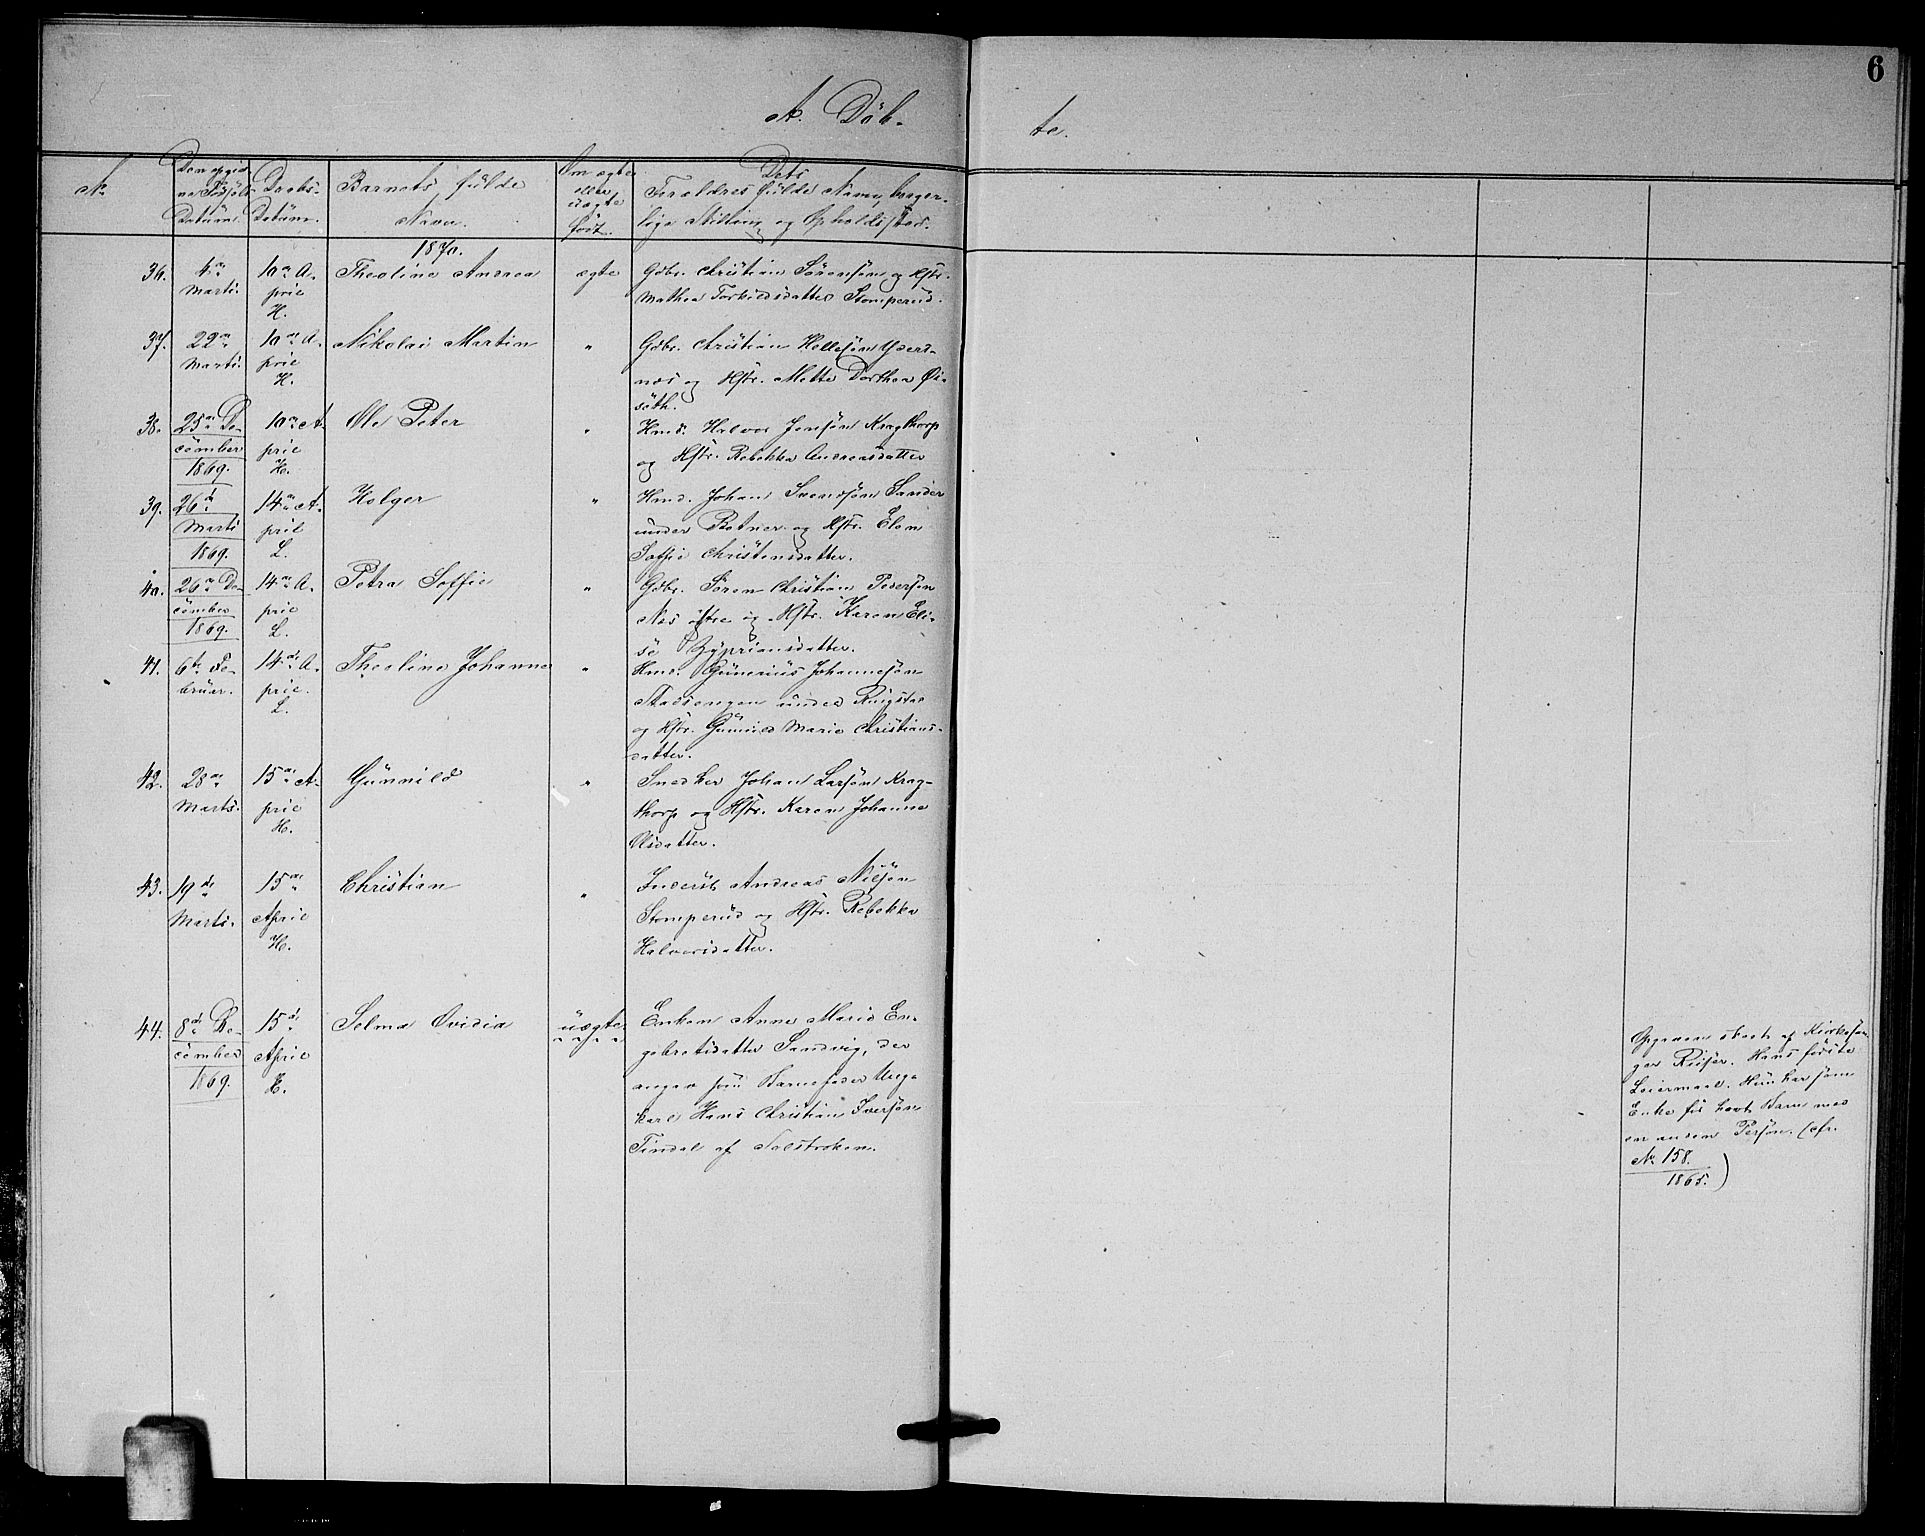 6
A. Döb-
te.
No
Den opgiv
ne Födsels
Datüm.
Daabs-
Datüm.
Barnets fülde
Navn.
Om ægte
eller
üægte
födt.
Dets
Forældres fülde Navn, borger-
lige Stilling og Opholdssted.
1870.
36.
4de
Marts.
10de A-
pril
H.
Theoline Andrea
ægte
Gdbr. Christian Sörensön og Hstr.
Mathea Torkildsdatter Stomperüd.
37.
22de
Marts.
10de A-
pril
H.
Nikolai Martin
"
Gdbr. Christian Hellesön Yders-
næs og Hstr. Mette Dorthea Öi-
seth.
38.
25de De-
cember
1869.
10de A-
pril
H.
Ole Peter
"
Hmd. Halvor Jensön Kragthorp
og Hstr. Rebekka Andreasdatter
39.
26de
Marts
1869.
14de A-
pril
L.
Holger
"
Hmd. Johan Svendsön Sander
under Botner og Hstr. Elen
Soffie Christensdatter.
40.
26de De-
cember
1869.
14de A-
pril
L.
Petra Soffie
"
Gdbr. Sören Christian Pedersön
Næs östre og Hstr. Karen Eli-
se Zyprionsdatter.
41.
6te Fe-
brüar.
14de A-
pril.
L.
Theoline Johanne
"
Hmd. Günerius Johannesön
under Ringstad
og Hstr. Günild Marie Christians-
datter.
42.
28de
Marts.
15de A-
pril
H.
Günnild
"
Snedker Johan Larsön Krag-
thorp og Hstr. Karen Johanne
Olsdatter.
43.
19de
Marts.
15de
April
H.
Christian
"
Inderst Andreas Nilsön
Stomperüd og Hstr. Rebekka
Halvorsdatter.
44.
8de De-
cember
1869.
15de
April
H.
Selma Ovidia
üægte
Enken Anne Marie En-
gebretsdatter Sandvig, der
angav som Barnefader Unge-
karl Hans Christian Iversön
Tindal af Solstroken.
Opgaven skeet af Kirkesan-
ger Riiser. Hans förste
Leiermaal. Hün har som
Enke för havt Barn med
en anden Person. (cfr.
No 158.
1865.)